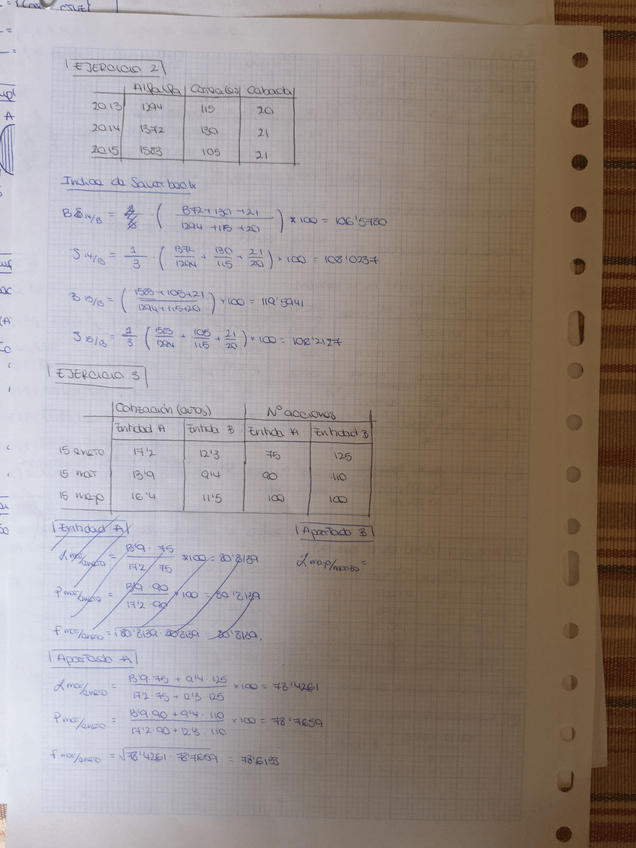 EJERCICIO 2
Alfalfa Cereales Cebada
2013 1294 115 20
2014 1372 130 21
2015 1583 105 21
Indice de Sauerbeck
14/13 = ( 1372+130+21 / 1294+115+20 ) × 100 = 106'5780
S 14/13 = 1/3 · ( 1372/1294 + 130/115 + 21/20 ) × 100 = 108'0237
B 15/13 = ( 1583+105+21 / 1294+115+20 ) × 100 = 119'5941
S 15/13 = 1/3 ( 1583/1294 + 105/115 + 21/20 ) × 100 = 106'2127
EJERCICIO 3
Cotización (euros) Nº acciones
Entidad A Entida B Entida A Entidad B
15 enero 17'2 12'3 75 125
15 mar 13'9 9'4 90 110
15 mayo 16'4 11'5 100 100
Entidad A Apartado B
L mar/enero = 13'9 · 75 / 17'2 · 75 × 100 = 80'8139 L mayo/marzo =
P mar/enero = 13'9 · 90 / 17'2 · 90 × 100 = 80'8139
F mar/enero = √80'8139 · 80'8139 80'8139.
Apartado A
L mar/enero = 13'9 · 75 + 9'4 · 125 / 17'2 · 75 + 12'3 · 125 × 100 = 78'4261
P mar/enero = 13'9 · 90 + 9'4 · 110 / 17'2 · 90 + 12'3 · 110 × 100 = 78'7659
F mar/enero = √78'4261 · 78'7659 = 78'6133